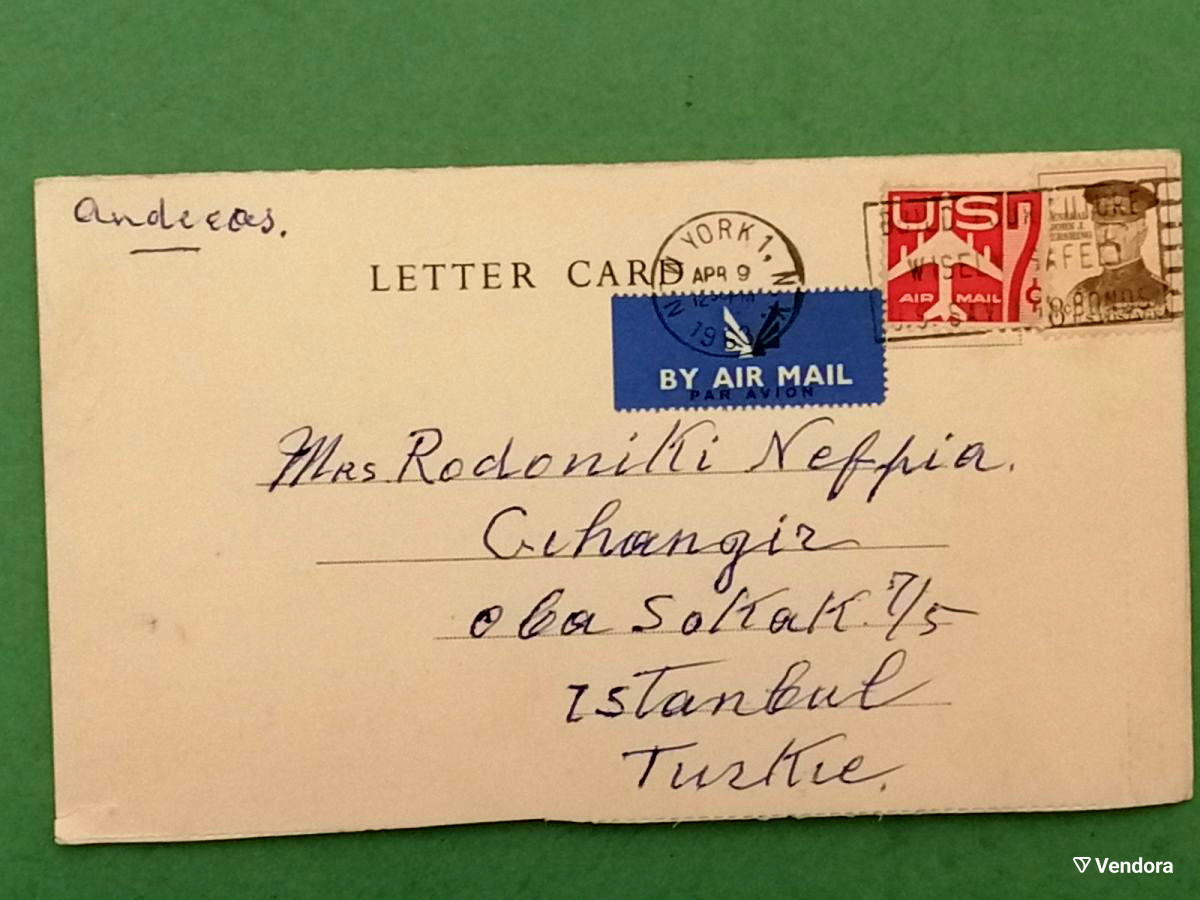 Andreas.
LETTER CARD
YORK 1, N.Y.
APR 9
12 PM
U.S. 7¢
AIR MAIL
GENERAL
JOHN J.
PERSHING
8¢
BUILD YOUR FUTURE
WISELY SAFELY
U.S. SAVINGS BONDS
BY AIR MAIL
PAR AVION
Mrs Rodoniki Neffia.
Cihangir
Oba Sokak. 7/5
Istanbul
Turkie.
Vendora